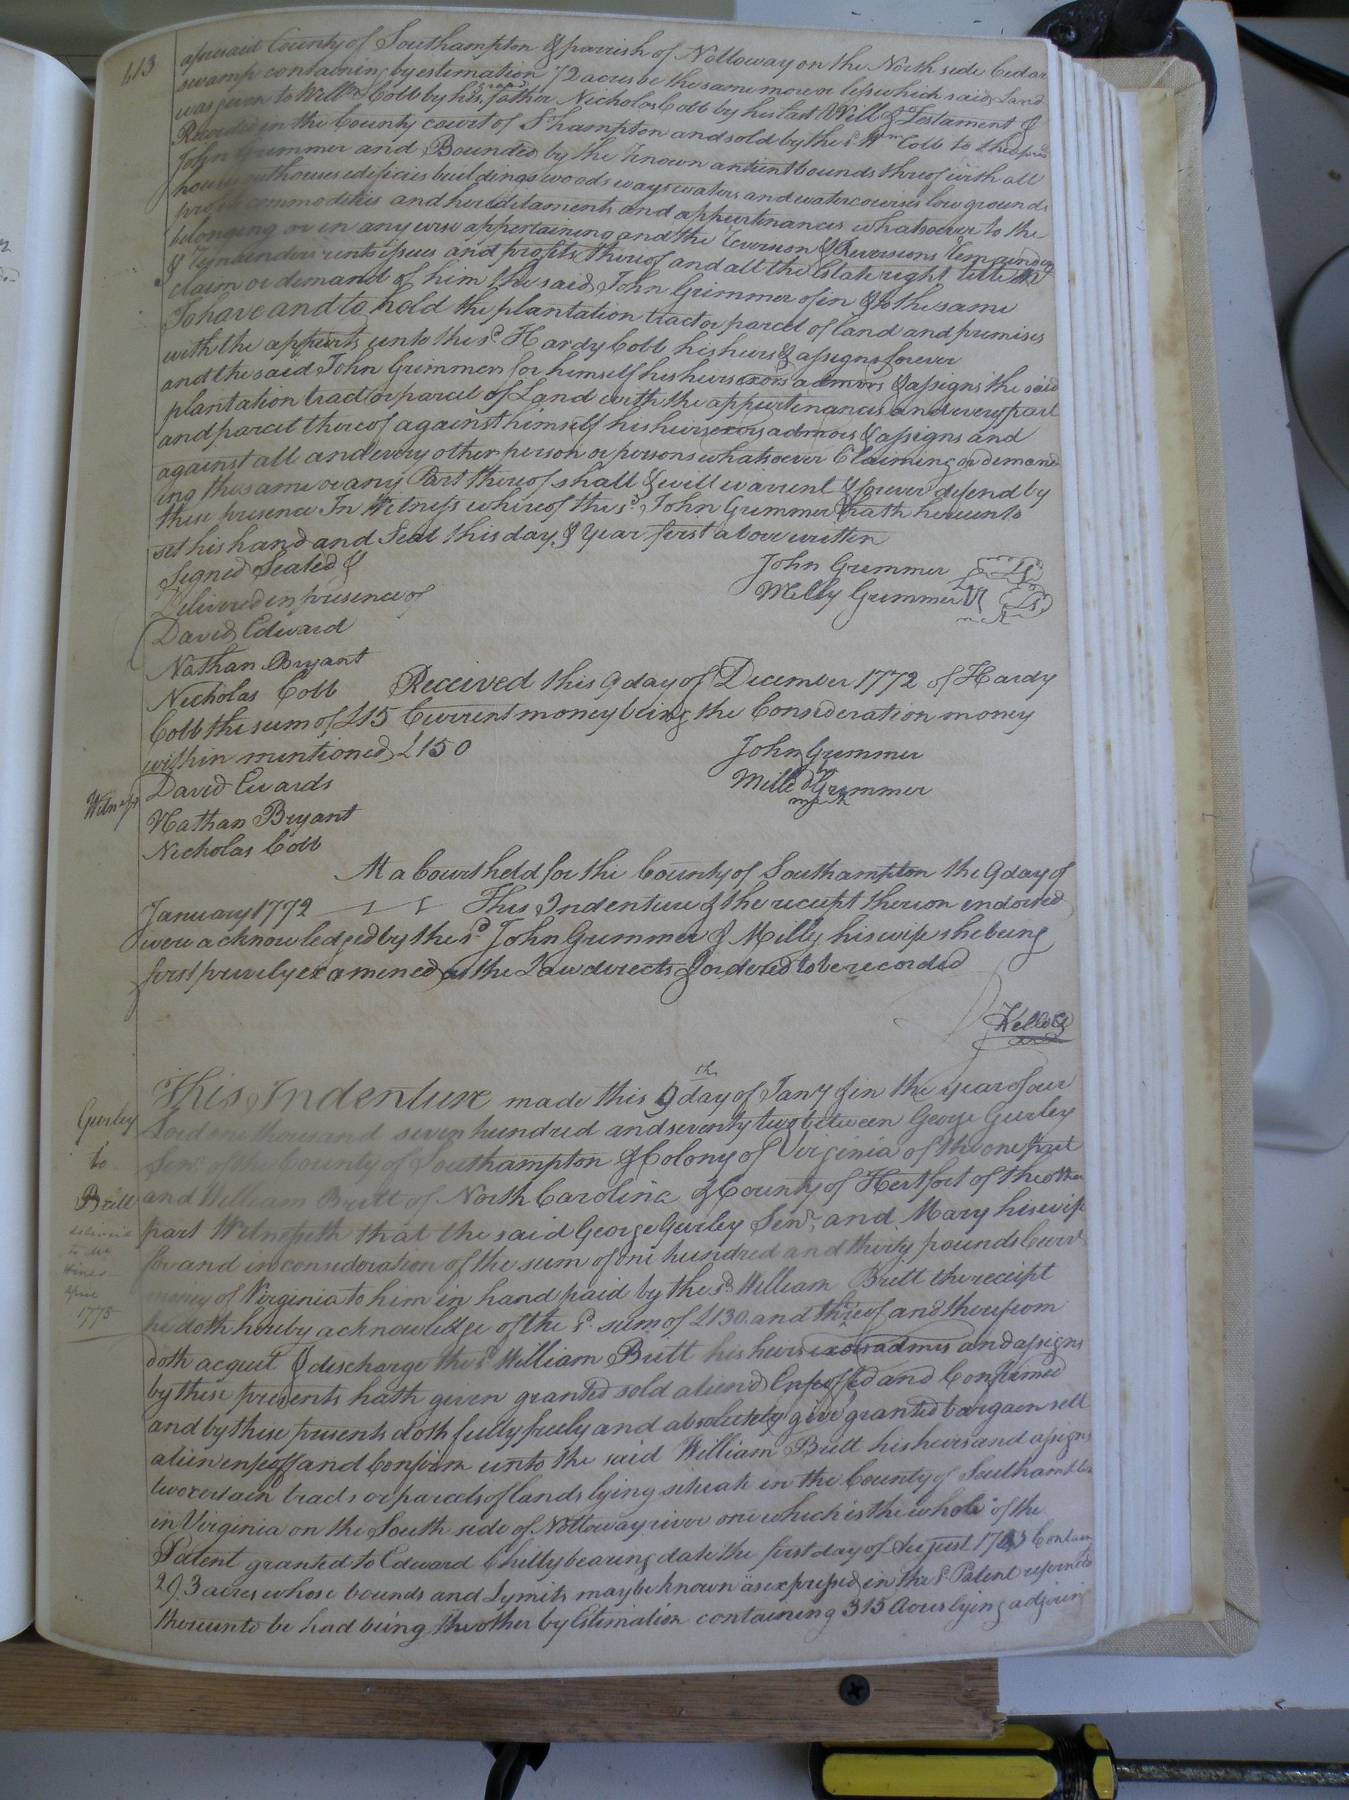 613
aforesaid County of Southampton & parrish of Nottoway on the North side Cedar
swamp containing by estimation 72 acres be the same more or less which said Land
was given to Willm Cobb by his grand father Nicholas Cobb by his last Will & Testament &
Recorded in the County court of S'hampton and sold by the sd. Wm Cobb to the aforesd
John Grimmer and Bounded by the known antient bounds thereof with all
houses outhouses edificies buildings woods ways waters and watercourses low grounds
profits commodities and hereditaments and appurtinances whatsoever to the
belonging or in any wise appertaining and the Reversion & Reversions Remainder
& Remainders rents issues and profits thereof and all the Estate right title
claim or demand of him the said John Grimmer of in & to the same
To have and to hold the plantation tract or parcel of land and premises
with the appurts unto the sd. Hardy Cobb his heirs & assigns forever
and the said John Grimmer for himself his heirs exors admors & assigns the said
plantation tract or parcel of Land with the appurtinances and every part
and parcel thereof against himself his heirs exors admors & assigns and
against all and every other person or persons whatsoever Claiming or demand
ing the same or any Part thereof shall & will warrent & forever defend by
these presence In Witness whereof the sd. John Grimmer hath hereunto
set his hand and Seal this day & year first above written
Signed Sealed &
John Grimmer Ls
Delivered in presence of
Milly Grimmer Ls
David Edward
Nathan Bryant
Nicholas Cobb Received this 9 day of December 1772 of Hardy
Cobb the sum of £15 Current money being the Consideration money
within mentioned £150
John Grimmer
Witness David Ewards
Mille Grimmer
mark
Nathan Bryant
Nicholas Cobb
At a Court held for the County of Southampton the 9 day of
January 1772 This Indenture & the receipt thereon endorsed
were acknowledged by the sd. John Grimmer & Milly his wife she being
first privily examined as the Law directs & ordered to be recorded
This Indenture made this 9th day of Jany & in the year of our
Gurley
to
Britt
Lord one thousand seven hundred and seventy two between George Gurley
Senr. of the County of Southampton & Colony of Virginia of the one part
and William Britt of North Carolina & County of Hertfort of the other
part Witnesseth that the said George Gurley Senr. and Mary his wife
for and in consideration of the sum of one hundred and thirty pounds Curt
1775
money of Virginia to him in hand paid by the sd. William Britt the receipt
he doth hereby acknowledge of the sd. sum of £130 and thereof and therefrom
doth acquit & discharge the sd. William Britt his heirs exors admrs and assigns
by these presents hath given granted sold aliend Enfeoffed and Confirmed
and by these presents doth fully freely and absolutely give granted bargain sell
alien enfeoff and Confirm unto the said William Britt his heirs and assigns
two certain tracts or parcels of lands lying scituate in the County of Southampton
in Virginia on the South side of Nottoway river one which is the whole of the
Patent granted to Edward Chitty bearing date the first day of August Contain
293 acres whose bounds and Lymits may be known as expressed in the sd. Patent
thereunto be had being the other by Estimation containing 315 Acres lying adjoining